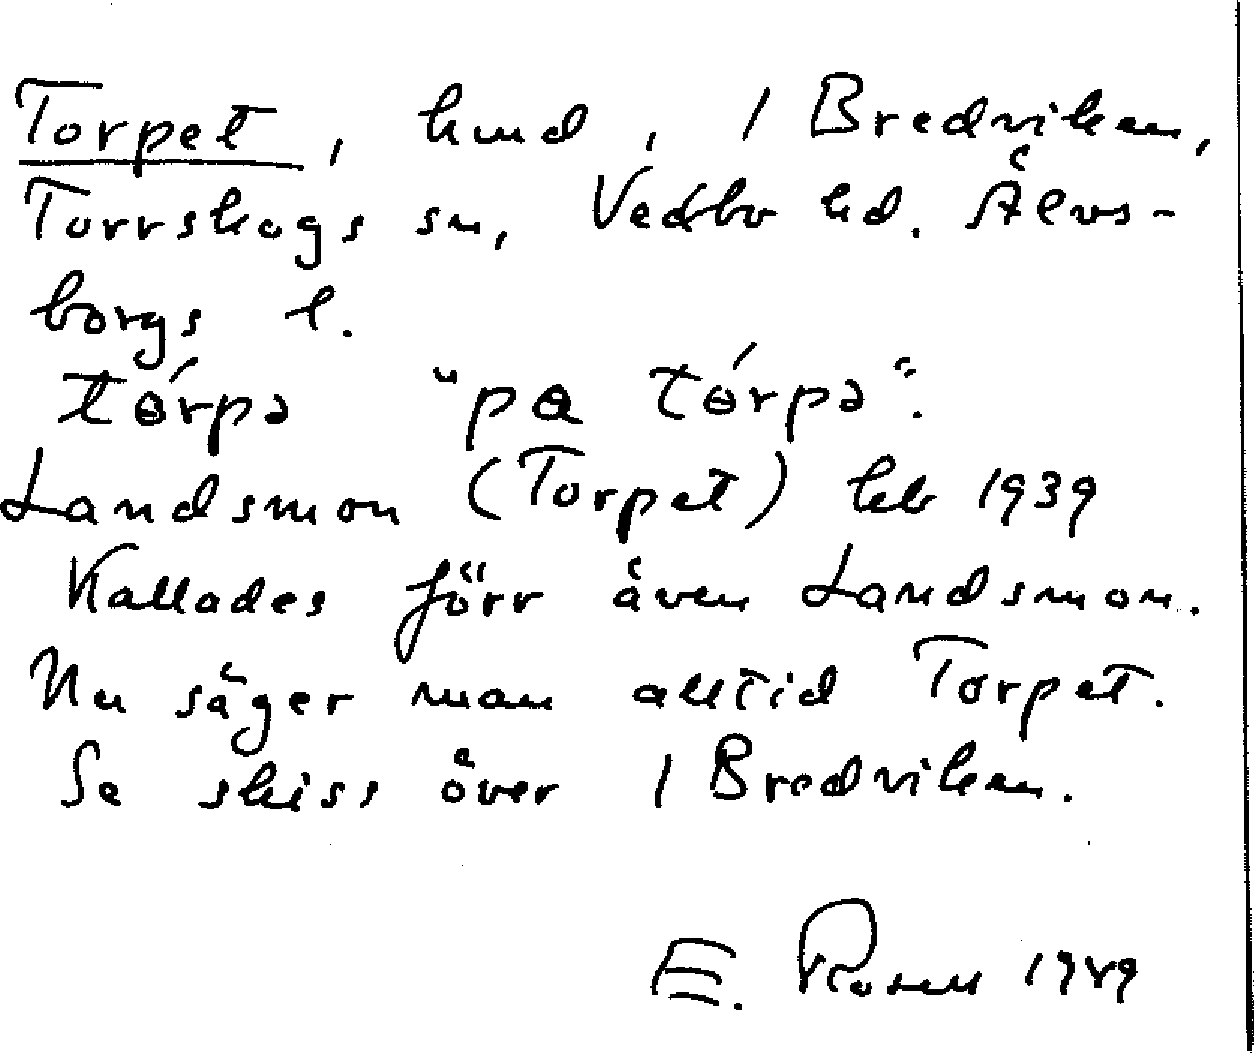 Torpet, hmd, 1 Bredviken,
Torrskogs sn, Vedbo hd. Älvs-
borgs l.
tórpə "pa tórpə".
Landsmon (Torpet) kb 1939
Kallades förr även Landsmon.
Nu säger man alltid Torpet.
Se skiss över 1 Bredviken.
E. Rosell 1949